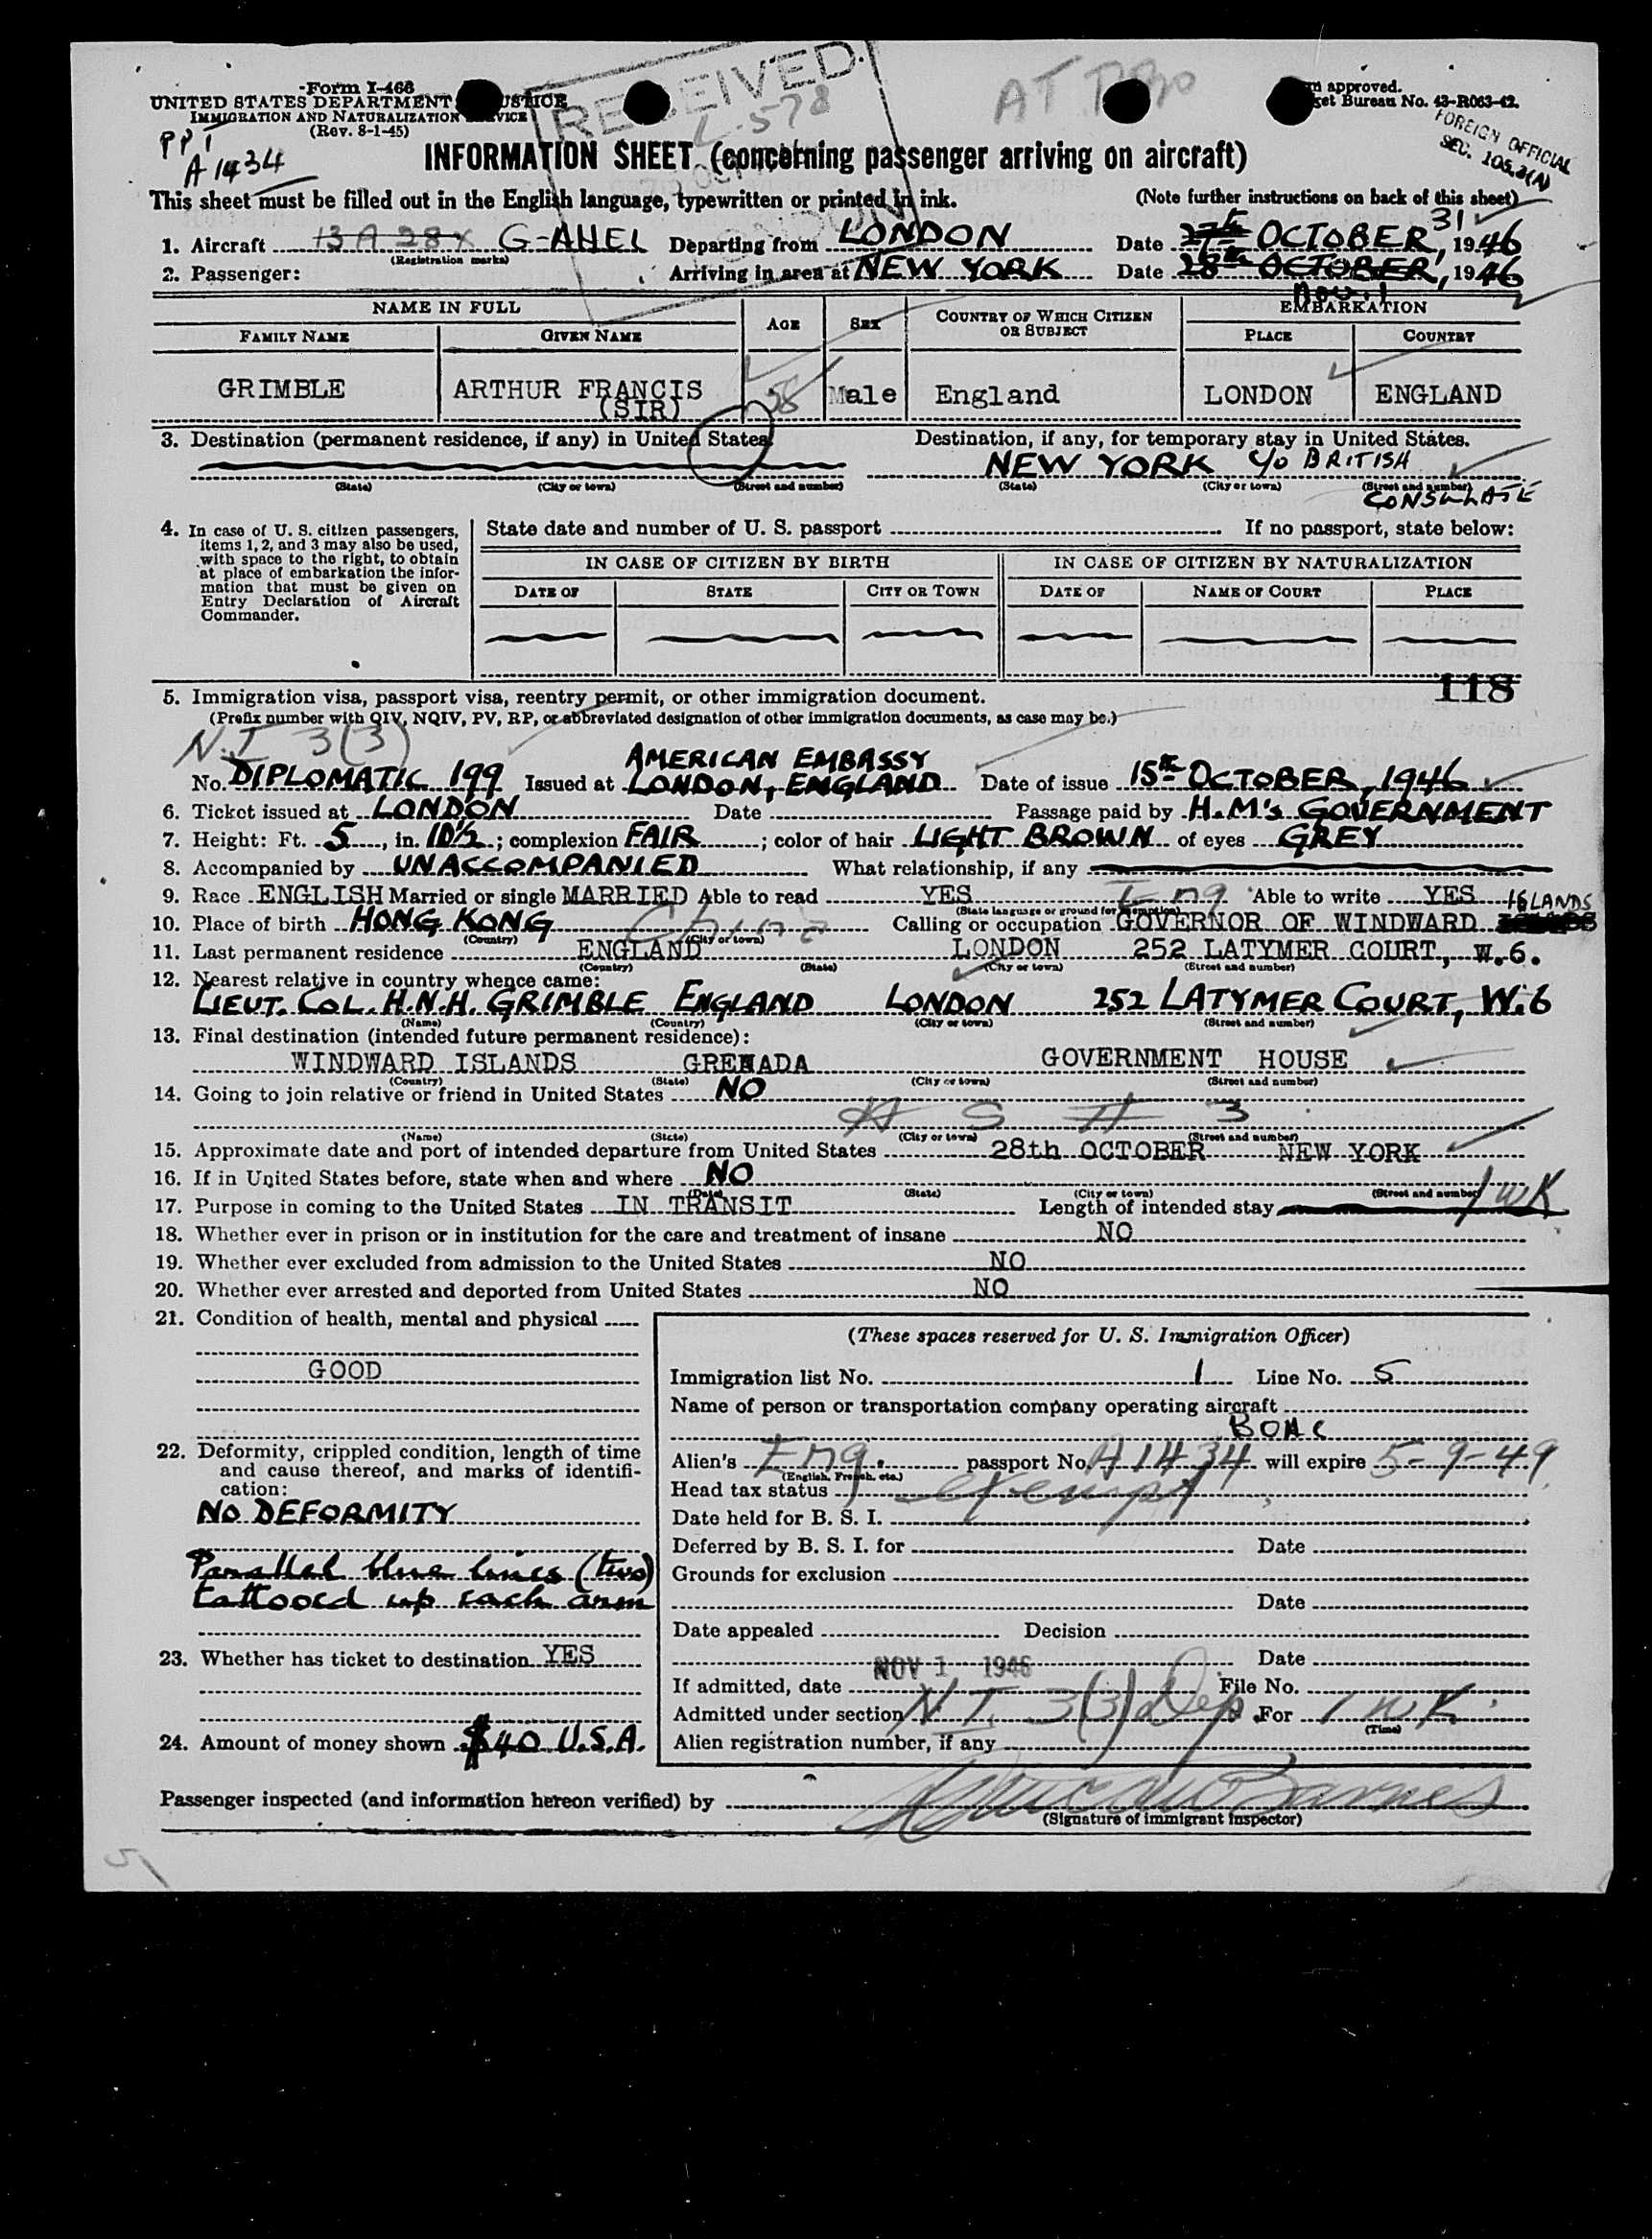 Form I-468
UNITED STATES DEPARTMENT
IMMIGRATION AND NATURALIZATION
(Rev. 8-1-45)
PPT
A 1434
RECEIVED
L-578
AT
approved.
Bureau No. 43-R063-42.
FOREIGN OFFICIAL
SEC. 105.3(A)
INFORMATION SHEET (concerning passenger arriving on aircraft)
This sheet must be filled out in the English language, typewritten or printed in ink. (Note further instructions on back of this sheet)
1. Aircraft G-AHEL Departing from LONDON Date 27th OCTOBER 31, 1946
(Registration marks)
2. Passenger: Arriving in area at NEW YORK Date 28th OCTOBER, 1946
Nov. 1
NAME IN FULL AGE SEX COUNTRY OF WHICH CITIZEN OR SUBJECT EMBARKATION
FAMILY NAME GIVEN NAME PLACE COUNTRY
GRIMBLE ARTHUR FRANCIS (SIR) 58 Male England LONDON ENGLAND
3. Destination (permanent residence, if any) in United States. Destination, if any, for temporary stay in United States.
NEW YORK c/o BRITISH
(State) (City or town) (Street and number) (State) (City or town) (Street and number)
CONSULATE
4. In case of U. S. citizen passengers, items 1, 2, and 3 may also be used, with space to the right, to obtain at place of embarkation the information that must be given on Entry Declaration of Aircraft Commander.
State date and number of U. S. passport If no passport, state below:
IN CASE OF CITIZEN BY BIRTH IN CASE OF CITIZEN BY NATURALIZATION
DATE OF STATE CITY OR TOWN DATE OF NAME OF COURT PLACE
118
5. Immigration visa, passport visa, reentry permit, or other immigration document.
(Prefix number with QIV, NQIV, PV, RP, or abbreviated designation of other immigration documents, as case may be.)
N.I 3(3)
AMERICAN EMBASSY
No. DIPLOMATIC 199 Issued at LONDON, ENGLAND Date of issue 15th OCTOBER, 1946
6. Ticket issued at LONDON Date Passage paid by H.M's GOVERNMENT
7. Height: Ft. 5, in. 10½; complexion FAIR; color of hair LIGHT BROWN of eyes GREY
8. Accompanied by UNACCOMPANIED What relationship, if any
9. Race ENGLISH Married or single MARRIED Able to read YES Eng Able to write YES
(State language or ground for exemption)
ISLANDS
10. Place of birth HONG KONG China Calling or occupation GOVERNOR OF WINDWARD
(Country) (City or town)
11. Last permanent residence ENGLAND LONDON 252 LATYMER COURT, W.6.
(Country) (State) (City or town) (Street and number)
12. Nearest relative in country whence came:
LIEUT. COL. H.N.H. GRIMBLE ENGLAND LONDON 252 LATYMER COURT, W.6
(Name) (Country) (City or town) (Street and number)
13. Final destination (intended future permanent residence):
WINDWARD ISLANDS GRENADA GOVERNMENT HOUSE
(Country) (State) (City or town) (Street and number)
14. Going to join relative or friend in United States NO
(Name) (State) (City or town) (Street and number)
15. Approximate date and port of intended departure from United States 28th OCTOBER NEW YORK
16. If in United States before, state when and where NO
(Date) (State) (City or town) (Street and number)
17. Purpose in coming to the United States IN TRANSIT Length of intended stay 1 wK
18. Whether ever in prison or in institution for the care and treatment of insane NO
19. Whether ever excluded from admission to the United States NO
20. Whether ever arrested and deported from United States NO
21. Condition of health, mental and physical
GOOD
22. Deformity, crippled condition, length of time and cause thereof, and marks of identification:
NO DEFORMITY
Parallel blue lines (two)
tattooed up each arm
23. Whether has ticket to destination YES
24. Amount of money shown $40 U.S.A.
(These spaces reserved for U. S. Immigration Officer)
Immigration list No. 1 Line No. 5
Name of person or transportation company operating aircraft
BOAC
Alien's Eng. passport No. A 1434 will expire 5-9-49
(English, French, etc.)
Head tax status exempt
Date held for B. S. I.
Deferred by B. S. I. for Date
Grounds for exclusion
Date
Date appealed Decision
Date
NOV 1 1946
If admitted, date File No.
Admitted under section N I. 3(3) Dep. For 1 wK.
(Time)
Alien registration number, if any
Passenger inspected (and information hereon verified) by
(Signature of immigrant inspector)